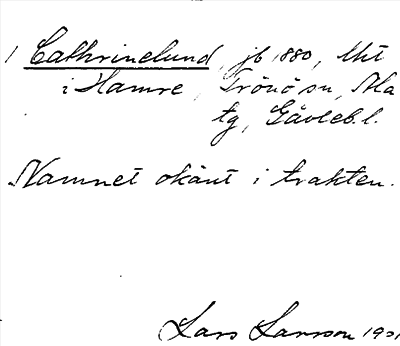 1 Cathrinelund, jb 1880, Utr
i Hamre, Trönö sn, Ala
tg, Gävleb. l.
Namnet okänt i trakten.
Lars Larsson 1931